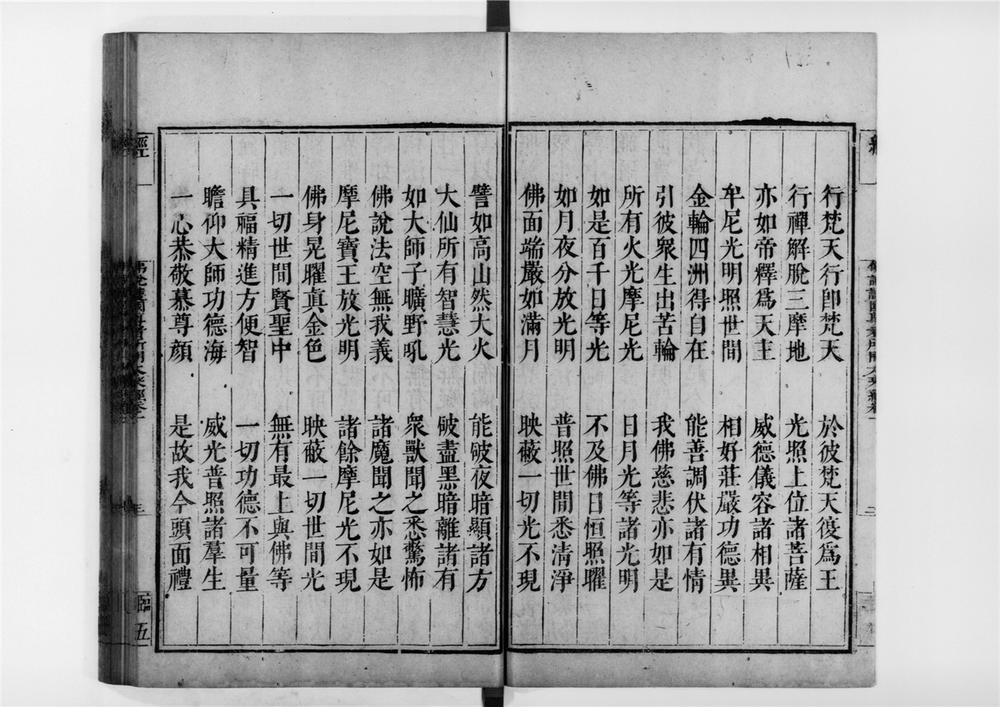 行梵天行即梵天　於彼梵天復為王
行禪解脫三摩地　光照上位諸菩薩
亦如帝釋為天主　威德儀容諸相異
牟尼光明照世間　相好莊嚴功德異
金輪四洲得自在　能善調伏諸有情
引彼衆生出苦輪　我佛慈悲亦如是
所有火光摩尼光　日月光等諸光明
如是百千日等光　不及佛日恒照曜
如月夜分放光明　普照世間悉清淨
佛面端嚴如滿月　映蔽一切光不現
譬如高山然大火　能破夜暗顯諸方
大仙所有智慧光　破盡黑暗離諸有
如大師子曠野吼　衆獸聞之悉驚怖
佛說法空無我義　諸魔聞之亦如是
摩尼寶王放光明　諸餘摩尼光不現
佛身晃曜真金色　映蔽一切世間光
一切世間賢聖中　無有最上與佛等
具福精進方便智　一切功德不可量
瞻仰大師功德海　威光普照諸羣生
一心恭敬慕尊顏　是故我今頭面禮
經
三
臨五